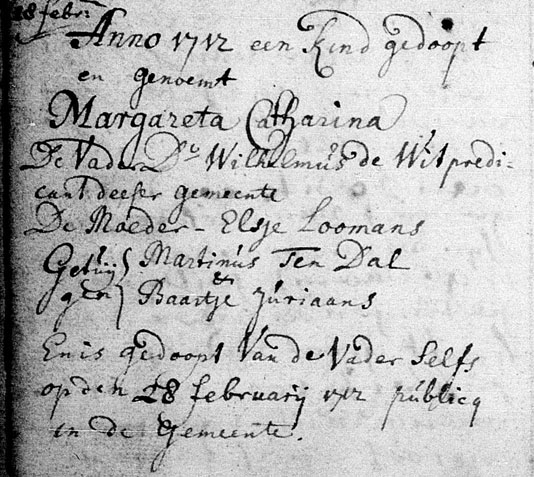 28 febr:
Anno 1712 een Kind gedoopt
en genoemt
Margareta Catharina
De Vader Ds Wilhelmus de Wit predi-
cant deeser gemeente
De Moeder - Elsje Loomans
Getuij { Martinus Ten Dal
gen } & Baartje Juriaans
En is gedoopt van de Vader selfs
op den 28 februarij 1712 publicq
in de Gemeente.